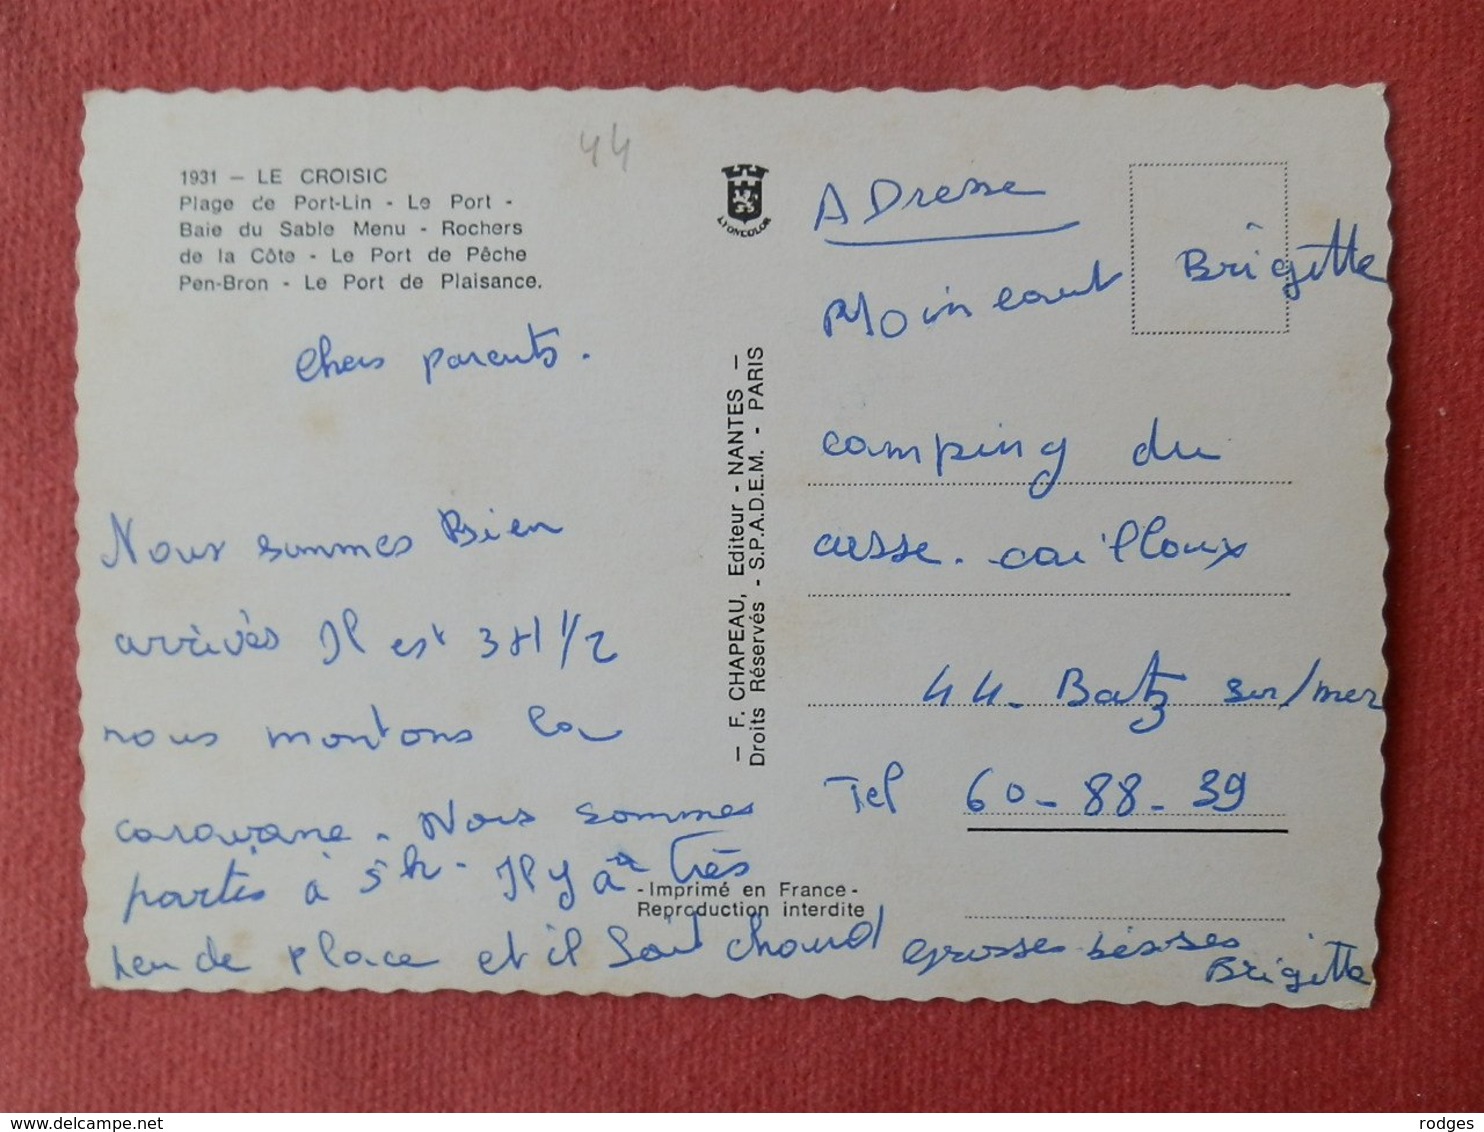 44
1931 – LE CROISIC
Plage de Port-Lin - Le Port -
Baie du Sable Menu - Rochers
de la Côte - Le Port de Pêche
Pen-Bron - Le Port de Plaisance.
LYONCOLOR
Chers parents.
Nous sommes Bien
arrivés Il est 3H 1/2
nous montons la
caravane. Nous sommes
partis à 5h. Il y a très
peu de place et il fait chaud
grosses bises
Brigitte
— F. CHAPEAU, Editeur - NANTES —
Droits Réservés - S.P.A.D.E.M. - PARIS
-Imprimé en France-
Reproduction interdite
ADresse
Moineaut Brigitte
camping du
casse. cailloux
44. Batz sur/mer
Tel 60-88-39
delcampe.net
rodges